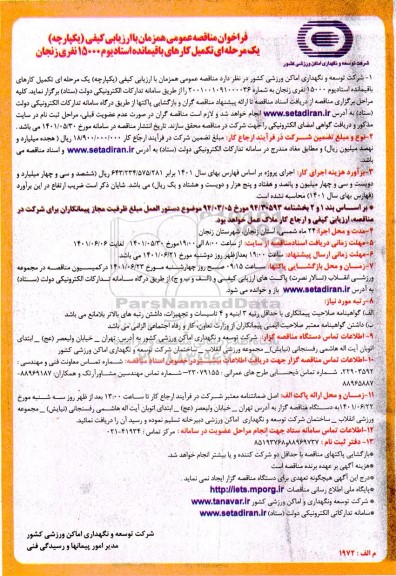 فراخوان مناقصه عمومی همزمان با ارزیابی کیفی (یکپارچه)
یک مرحله ای تکمیل کارهای باقیمانده استادیوم ۱۵۰۰۰ نفری زنجان
شرکت توسعه و نگهداری اماکن ورزشی کشور
۱- شرکت توسعه و نگهداری اماکن ورزشی کشور در نظر دارد مناقصه عمومی همزمان با ارزیابی کیفی (یکپارچه) یک مرحله ای تکمیل کارهای
باقیمانده استادیوم ۱۵۰۰۰ نفری زنجان به شماره ۲۰۰۱۰۰۱۰۹۱۰۰۰۰۳۶ را از طریق سامانه تدارکات الکترونیکی دولت (ستاد) برگزار نماید. کلیه
مراحل برگزاری مناقصه از دریافت اسناد مناقصه تا ارائه پیشنهاد مناقصه گران و بازگشایی پاکتها از طریق درگاه سامانه تدارکات الکترونیکی دولت
(ستاد) به آدرس www.setadiran.ir انجام خواهد شد و لازم است مناقصه گران در صورت عدم عضویت قبلی، مراحل ثبت نام در سایت
مذکور و دریافت گواهی امضای الکترونیکی را جهت شرکت در مناقصه محقق سازند. تاریخ انتشار مناقصه در سامانه مورخ ۱۴۰۱/۰۵/۳۰ می باشد.
۲- نوع و مبلغ تضمین شرکت در فرآیند ارجاع کار: مبلغ تضمین شرکت در فرآیند ارجاع کار ۱۸/۹۰۰/۰۰۰/۰۰۰ ریال ( هجده میلیارد و
نهصد میلیون ریال) و مطابق مفاد مندرج در سامانه تدارکات الکترونیکی دولت (ستاد) به آدرس www.setadiran.ir و اسناد مناقصه می
باشد.
۳- برآورد هزینه اجرای کار: اجرای پروژه بر اساس فهارس بهای سال ۱۴۰۱ برابر ۶۴۳/۲۳۴/۵۷۵/۲۸۱ ریال (ششصد و سی و چهار میلیارد و
دویست و سی و چهار میلیون و پانصد و هفتاد و پنج هزار و دویست و هشتاد و یک ریال) می باشد. شایان ذکر است ضریب ارتفاع در این برآورد
(فهارس بهای سال ۱۴۰۱) محاسبه نشده است.
* بر اساس بند ۱ و ۲ بخشنامه ۹۴/۳۰۵۹۳ مورخ ۹۴/۰۳/۰۵ موضوع دستور العمل مبلغ ظرفیت مجاز پیمانکاران برای شرکت در
مناقصه، ارزیابی کیفی و ارجاع کار ملاک عمل خواهد بود.
۴- مدت و محل اجرا: ۲۴ ماه شمسی، استان زنجان، شهرستان زنجان
۵- مهلت زمانی دریافت اسناد مناقصه از سایت: از ساعت ۸:۰۰ الی ۱۹:۰۰ مورخ ۱۴۰۱/۰۵/۳۰ لغایت ۱۴۰۱/۰۶/۰۶
۶- مهلت زمانی ارسال پیشنهاد: ساعت ۱۹:۰۰ بعدازظهر روز دوشنبه مورخ ۱۴۰۱/۰۶/۲۱ می باشد
۷- زمان و محل بازگشایی پاکتها: ساعت ۰۹:۱۵ صبح روز چهارشنبه مورخ ۱۴۰۱/۰۶/۲۳ در کمیسیون مناقصه در مجموعه
ورزشی انقلاب (تالار نصرت) پاکت های ارزیابی کیفی و (الف و ب و ج) از طریق درگاه سامانه تدارکات الکترونیکی دولت(ستاد)
به آدرس www.setadiran.ir باز و خوانده می شود.
۸- رتبه مورد نیاز:
الف) گواهینامه صلاحیت پیمانکاری با حداقل رتبه ۳ ابنیه و ۴ تاسیسات و تجهیزات، داشتن رتبه های بالاتر بلامانع می باشد
ب) داشتن گواهینامه معتبر صلاحیت ایمنی پیمانکاران از وزارت تعاون، کار و رفاه اجتماعی الزامی می باشد
۹- اطلاعات تماس دستگاه مناقصه گزار: شرکت توسعه و نگهداری اماکن ورزشی کشور به آدرس: تهران _ خیابان ولیعصر (عج) _ ابتدای
اتوبان آیت اله هاشمی رفسنجانی (نیایش) _ مجموعه ورزشی انقلاب _ ساختمان شرکت توسعه و نگهداری اماکن ورزشی کشور
۱۰- اطلاعات تماس مناقصه گزار جهت دریافت اطلاعات بیشتر در حوزه اسناد مناقصه: شماره تماس معاونت فنی و مهندسی:
۲۲۹۰۳۵۹۲، شماره تماس ذیحسابی طرح های عمرانی: ۳۳۰۷۹۱۵۵- شماره تماس مهندسین مشاور آرتنگ و همکاران: ۸۸۹۶۹۱۸۷-
۸۸۹۶۵۸۸۷
۱۱- زمـان و محل ارائه پاکت الف: اصل ضمانتنامه معتبر شرکت در فرآیند ارجاع کار تا ساعت ۱۳:۰۰ بعد از ظهر روز سه شنبه مورخ
۱۴۰۱/۰۶/۲۲ به دستگاه مناقصه گزار به آدرس تهران _ خیابان ولیعصر (عج) _ ابتدای اتوبان آیت اله هاشمی رفسنجانی (نیایش) _ مجموعه
ورزشی انقلاب _ ساختمان شرکت توسعه و نگهداری اماکن ورزشی دبیرخانه تسلیم نموده و رسید آن را دریافت نمائید.
۱۲- اطلاعات تماس سامانه ستاد جهت انجام مراحل عضویت در سامانه : مرکز تماس : ۴۱۹۳۴-۰۲۱
۱۳- دفتر ثبت نام : ۸۸۹۶۹۷۳۷ و ۸۵۱۹۳۷۶۸
*بازگشایی پاکتهای مناقصه با حداقل دو شرکت کننده و یا بیشتر انجام خواهد شد.
*هزینه آگهی بر عهده برنده مناقصه است
*درج این آگهی هیچگونه تعهدی برای دستگاه مناقصه گزار ایجاد نمی نماید.
*پایگاه ملی اطلاع رسانی مناقصات http://iets.mporg.ir
*شرکت توسعه ونگهداری و اماکن ورزشی کشور www.tanavar.ir
*سامانه تدارکاتی الکترونیکی دولت (ستاد) www.setadiran.ir
شرکت توسعه و نگهداری اماکن ورزشی کشور
مدیر امور پیمانها و رسیدگی فنی
م الف : ۱۹۷۲
ParsNamadData